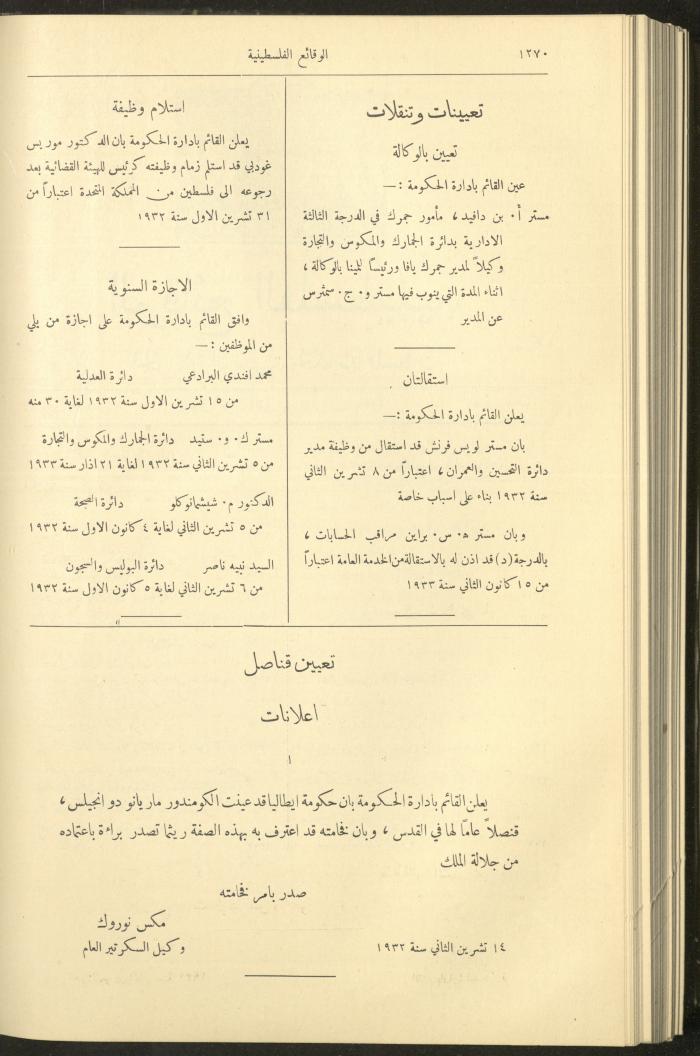 ١٢٧٠
الوقائع الفلسطينية
تعيينات وتنقلات
تعيين بالوكالة
عين القائم بادارة الحكومة : —
مستر أ٠ بن دافيد ، مأمور جمرك في الدرجة الثالثة
الادارية بدائرة الجمارك والمكوس والتجارة
وكيلاً لمدير جمرك يافا ورئيسًا للمينا بالوكالة ،
اثناء المدة التي ينوب فيها مستر و٠ ج٠ سمثرس
عن المدير
استقالتان
يعلن القائم بادارة الحكومة : —
بان مستر لويس فرنش قد استقال من وظيفة مدير
دائرة التحسين والعمران ، اعتباراً من ٨ تشرين الثاني
سنة ١٩٣٢ بناء على اسباب خاصة
وبان مستر ه٠ س٠ براين مراقب الحسابات ،
بالدرجة (د) قد اذن له بالاستقالة من الخدمة العامة اعتباراً
من ١٥ كانون الثاني سنة ١٩٣٣
استلام وظيفة
يعلن القائم بادارة الحكومة بان الدكتور موريس
غودبي قد استلم زمام وظيفته كرئيس للهيئة القضائية بعد
رجوعه الى فلسطين من المملكة المتحدة اعتباراً من
٣١ تشرين الاول سنة ١٩٣٢
الاجازة السنوية
وافق القائم بادارة الحكومة على اجازة من يلي
من الموظفين : —
محمد افندي البرادعي دائرة العدلية
من ١٥ تشرين الاول سنة ١٩٣٢ لغاية ٣٠ منه
مستر ك٠ و٠ ستيد دائرة الجمارك والمكوس والتجارة
من ٥ تشرين الثاني سنة ١٩٣٢ لغاية ٢١ اذار سنة ١٩٣٣
الدكتور م٠ شيشمانوكلو دائرة الصحة
من ٥ تشرين الثاني لغاية ٤ كانون الاول سنة ١٩٣٢
السيد نبيه ناصر دائرة البوليس والسجون
من ٦ تشرين الثاني لغاية ٥ كانون الاول سنة ١٩٣٢
تعيين قناصل
اعلانات
١
يعلن القائم بادارة الحكومة بان حكومة ايطاليا قد عينت الكومندور ماريانو دو انجيلس ،
قنصلاً عامًا لها في القدس ، وبان فخامته قد اعترف به بهذه الصفة ريثما تصدر براءة باعتماده
من جلالة الملك
صدر بامر فخامته
مكس نوروك
١٤ تشرين الثاني سنة ١٩٣٢
وكيل السكرتير العام